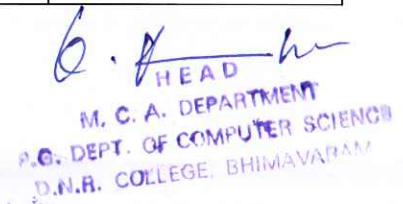 HEAD
M. C. A. DEPARTMENT
P.G. DEPT. OF COMPUTER SCIENCE
D.N.R. COLLEGE, BHIMAVARAM